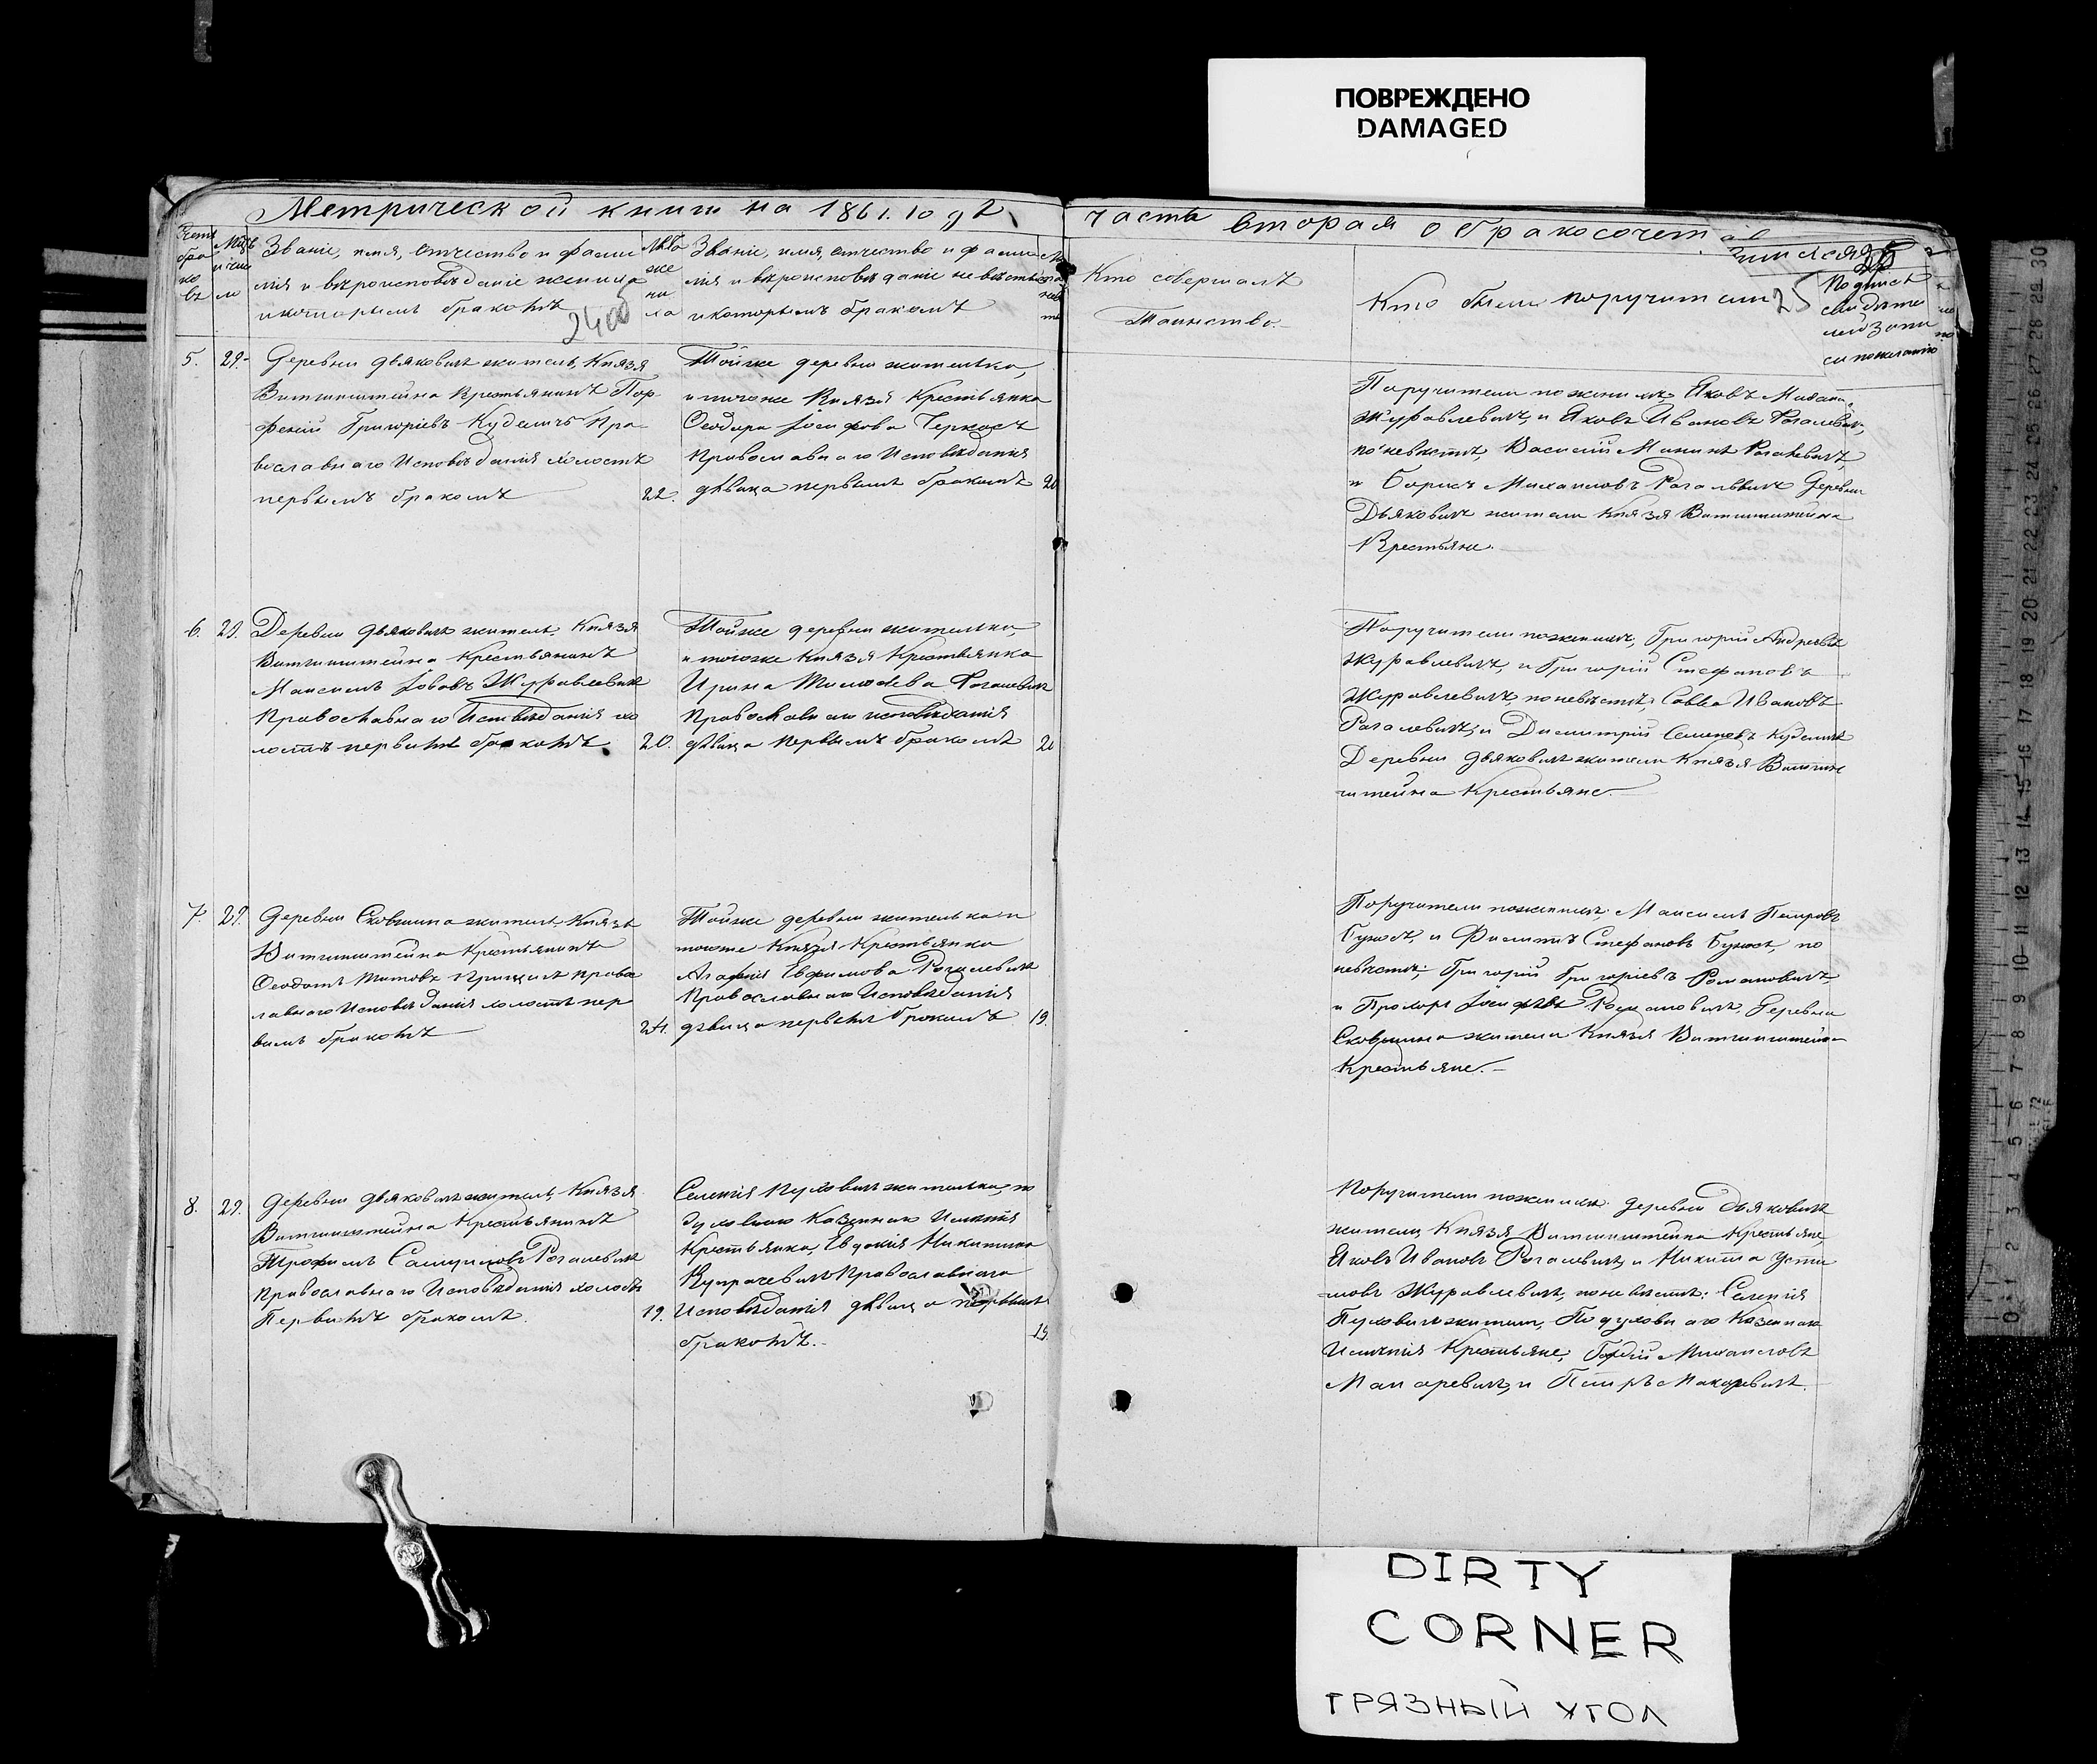 ПОВРЕЖДЕНО
DAMAGED
Метрической книги на 1861. годъ
часть вторая о бракосочетав
шихся
Счетъ
бра
ко
въ
Мѣсяцъ
и чис
ло
Званіе, имя, отчество и фами
лія и вѣроисповѣданіе жениха
и которымъ бракомъ
2400
Лѣта
же
ни
ха
Званіе, имя, отчество и фами
лія и вѣроисповѣданіе невѣсты
и которымъ бракомъ
Кто совершалъ
Таинство
Кто были поручители
25
Подпись
свидѣте
лей запи
си по желанію
5.
29.
Деревни Дьяковичъ житель, Князя
Витгинштейна Крестьянинъ Пор
фений Григоріевъ Куделичъ Пра
вославнаго Исповѣданія холостъ
первымъ бракомъ
22.
Тойже деревни жителька,
и тогоже Князя Крестьянка
Ѳеодора Іосифова Черкасъ
Православнаго Исповѣданія
дѣвица первымъ бракомъ
20
Поручители по женихѣ, Яковъ
Журавлевичъ, и Яковъ Ивановъ Рогалевичъ,
по невѣстѣ, Василій Рогалевичъ,
и Борисъ Михаиловъ Рогалевичъ Деревни
Дьяковичъ жители Князя Витгинштейна
Крестьяне.
6.
29.
Деревни Дьяковичъ житель, Князя
Витгинштейна Крестьянинъ
Максимъ Іововъ Журавлевичъ
Православнаго Исповѣданія хо
лостъ первымъ бракомъ
20.
Тойже деревни жителька,
и тогоже Князя Крестьянка
Ирина Рогалевичъ
Православнаго исповѣданія
дѣвица первымъ бракомъ
20
Поручители по женихѣ, Григорій Андреевъ
Журавлевичъ, и Григорій Стефановъ
Журавлевичъ, по невѣстѣ, Савва Ивановъ
Рогалевичъ, и Димитрій Семеновъ Куделичъ
Деревни Дьяковичъ жители Князя Витгин
штейна Крестьяне.
7.
29.
Деревни житель, Князя
Витгинштейна Крестьянинъ
Ѳеодотъ Титовъ Право
славнаго Исповѣданія холостъ пер
вымъ бракомъ
24.
Тойже деревни жителька и
тогоже Князя Крестьянка
Агафія Евфимова Рогалевичъ
Православнаго Исповѣданія
дѣвица первымъ бракомъ
19.
Поручители по женихѣ, Максимъ Петровъ
и Филиппъ Стефановъ по
невѣстѣ, Григорій Григоріевъ Романовичъ,
и Прохоръ Іосифовъ Романовичъ, Деревни
жители Князя Витгинштейна
Крестьяне.
8.
29.
Деревни Дьяковичъ житель, Князя
Витгинштейна Крестьянинъ
Трофимъ Рогалевичъ
Православнаго Исповѣданія холостъ
Первымъ бракомъ.
19.
Селенія Пуховичъ жителька, По
духовнаго Казеннаго Имѣнія
Крестьянка, Евдокія Никитина
Купрачевичъ Православнаго
Исповѣданія дѣвица первымъ
бракомъ.
19.
Поручители по женихѣ: деревни Дьяковичъ
жители, Князя Витгинштейна Крестьяне,
Яковъ Ивановъ Рогалевичъ, и Никита Усти
новъ Журавлевичъ, по невѣстѣ: Селенія
Пуховичъ жители, Подуховнаго Казеннаго
Имѣнія Крестьяне, Гордій Михаиловъ
Макаревичъ, и Петръ Макаревичъ.
DIRTY
CORNER
ГРЯЗНЫЙ УГОЛ